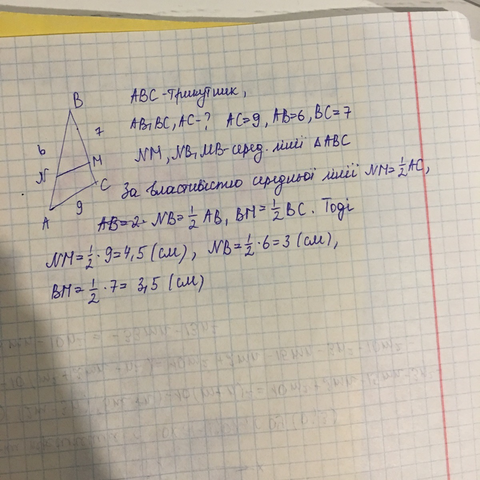 B
ABC - трикутник,
7
AB, BC, AC - ? AC = 9, AB = 6, BC = 7
6
M
NM, NB, MB - серед. лінії ΔABC
N
C
За властивістю середньої лінії NM = 1/2 AC,
9
A
AB = 2 · NB = 1/2 AB, BM = 1/2 BC. Тоді
NM = 1/2 · 9 = 4,5 (см), NB = 1/2 · 6 = 3 (см),
BM = 1/2 · 7 = 3,5 (см)